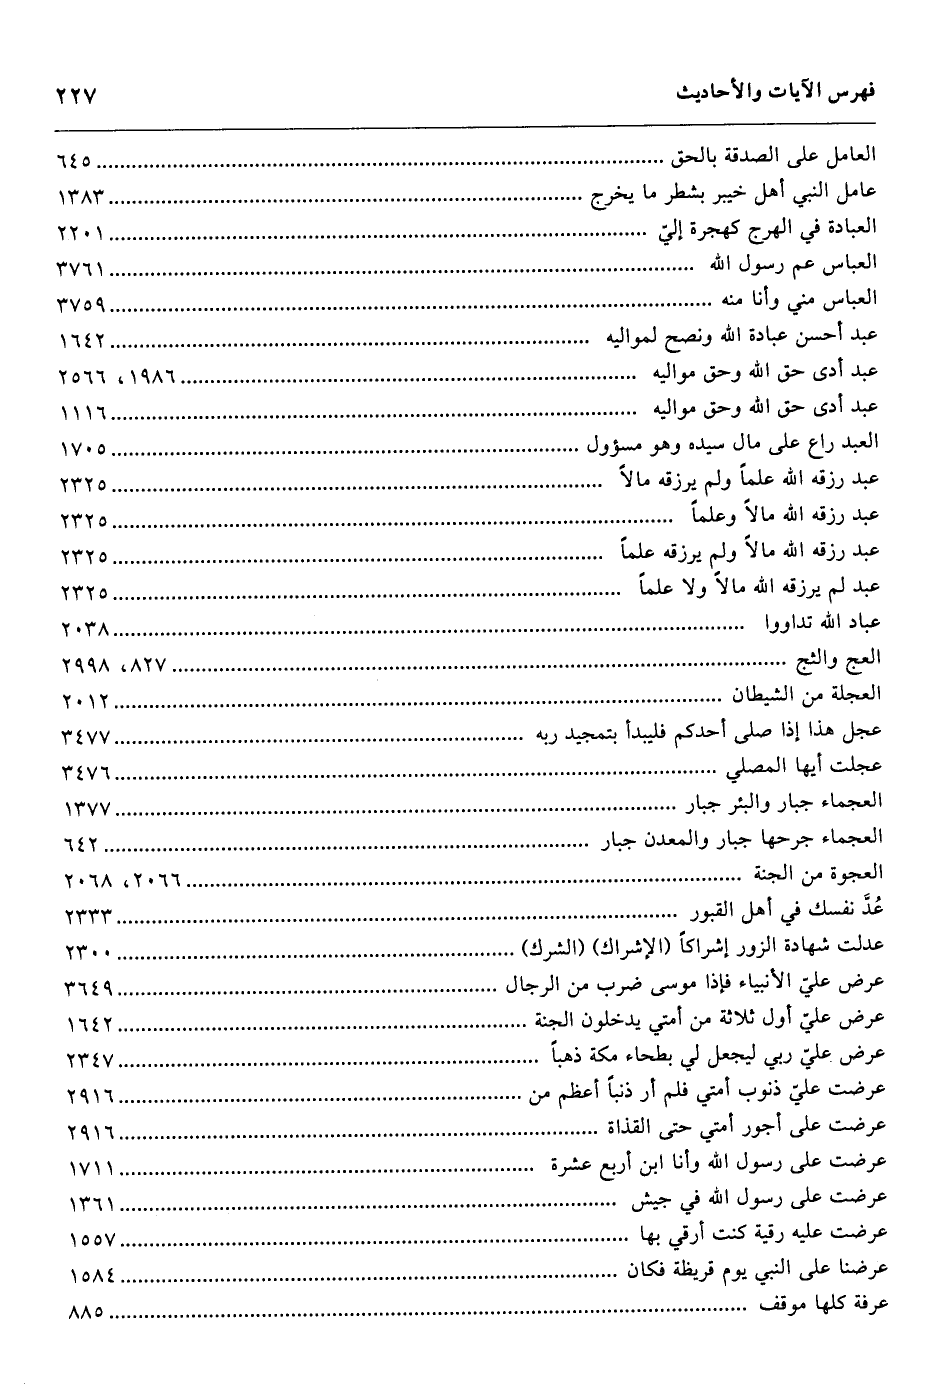 فهرس الآيات والأحاديث ٢٢٧
العامل على الصدقة بالحق ٦٤٥
عامل النبي أهل خيبر بشطر ما يخرج ١٣٨٣
العبادة في الهرج كهجرة إليّ ٢٢٠١
العباس عم رسول الله ٣٧٦١
العباس مني وأنا منه ٣٧٥٩
عبد أحسن عبادة الله ونصح لمواليه ١٦٤٢
عبد أدى حق الله وحق مواليه ١٩٨٦، ٢٥٦٦
عبد أدى حق الله وحق مواليه ١١١٦
العبد راع على مال سيده وهو مسؤول ١٧٠٥
عبد رزقه الله علماً ولم يرزقه مالاً ٢٣٢٥
عبد رزقه الله مالاً وعلماً ٢٣٢٥
عبد رزقه الله مالاً ولم يرزقه علماً ٢٣٢٥
عبد لم يرزقه الله مالاً ولا علماً ٢٣٢٥
عباد الله تداووا ٢٠٣٨
العج والثج ٨٢٧، ٢٩٩٨
العجلة من الشيطان ٢٠١٢
عجل هذا إذا صلى أحدكم فليبدأ بتمجيد ربه ٣٤٧٧
عجلت أيها المصلي ٣٤٧٦
العجماء جبار والبئر جبار ١٣٧٧
العجماء جرحها جبار والمعدن جبار ٦٤٢
العجوة من الجنة ٢٠٦٦، ٢٠٦٨
عُدَّ نفسك في أهل القبور ٢٣٣٣
عدلت شهادة الزور إشراكاً (الإشراك) (الشرك) ٢٣٠٠
عرض عليّ الأنبياء فإذا موسى ضرب من الرجال ٣٦٤٩
عرض عليّ أول ثلاثة من أمتي يدخلون الجنة ١٦٤٢
عرض عليّ ربي ليجعل لي بطحاء مكة ذهباً ٢٣٤٧
عرضت عليّ ذنوب أمتي فلم أر ذنباً أعظم من ٢٩١٦
عرضت على أجور أمتي حتى القذاة ٢٩١٦
عرضت على رسول الله وأنا ابن أربع عشرة ١٧١١
عرضت على رسول الله في جيش ١٣٦١
عرضت عليه رقية كنت أرقي بها ١٥٥٧
عرضنا على النبي يوم قريظة فكان ١٥٨٤
عرفة كلها موقف ٨٨٥